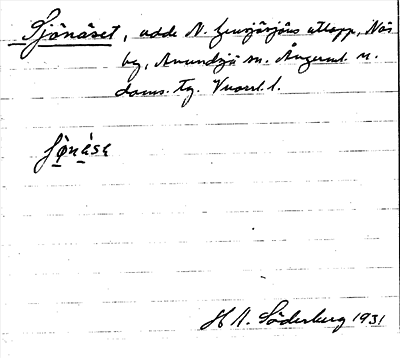 Sjönäset, udde N. Gersjösjöns utlopp, Näs
by, Anundsjö sn. Ångerml. n.
doms. tg. Vnorrl. l.
ʃønẹ́sa
H A. Söderberg 1931